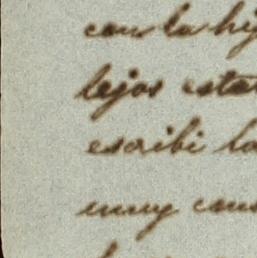 con la hij
lejos esta
escribi la
muy cans